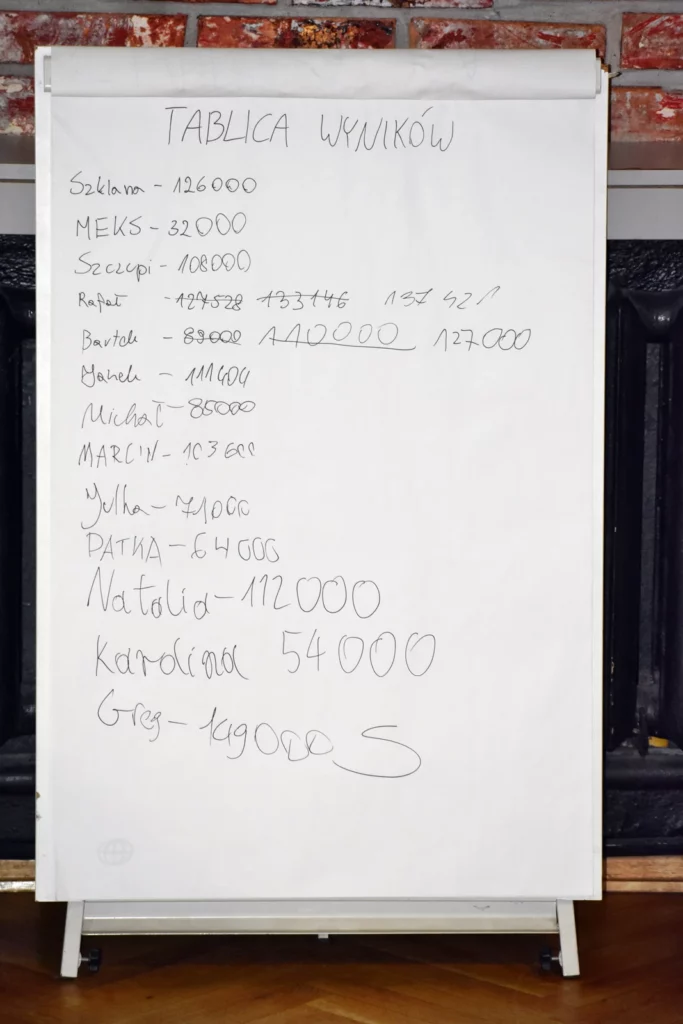 TABLICA WYNIKÓW
Szklana - 126000
MEKS - 32000
Szczupi - 108000
Rafał - 127528 133146 137 421
Bartek - 89000 110000 127000
Janek - 111404
Michał - 85000
MARCIN - 103600
Julka - 71000
PATKA - 64000
Natalia - 112000
Karolina 54000
Greg - 149000 S